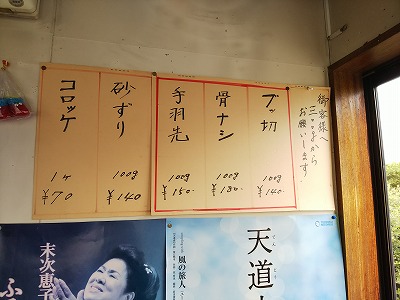 御客様へ
三ッ子から
お願いします。
ブッ切
100g
¥140-
骨ナシ
100g
¥180-
手羽先
100g
¥150-
砂ずり
100g
¥140
コロッケ
1ケ
¥70
天道
風の旅人
末次恵子
ふ